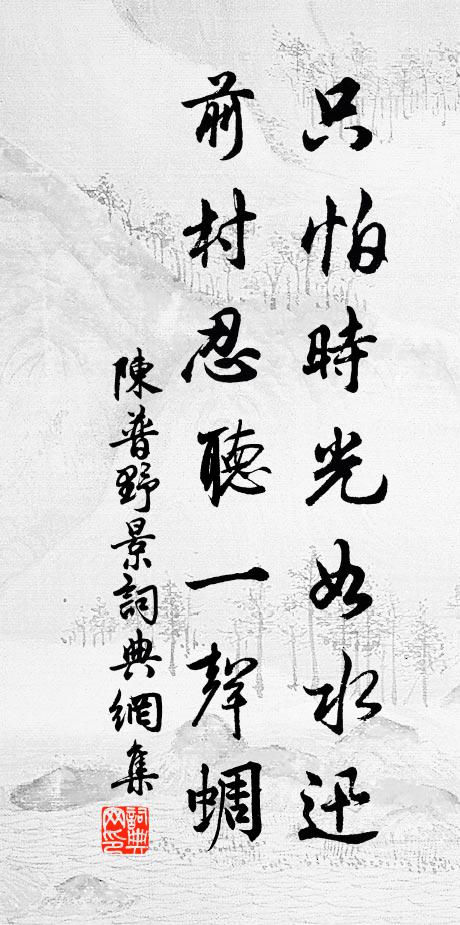 只怕時光如水迅
前村忍聽一聲蜩
陳普野景詞典網集
詞典網印